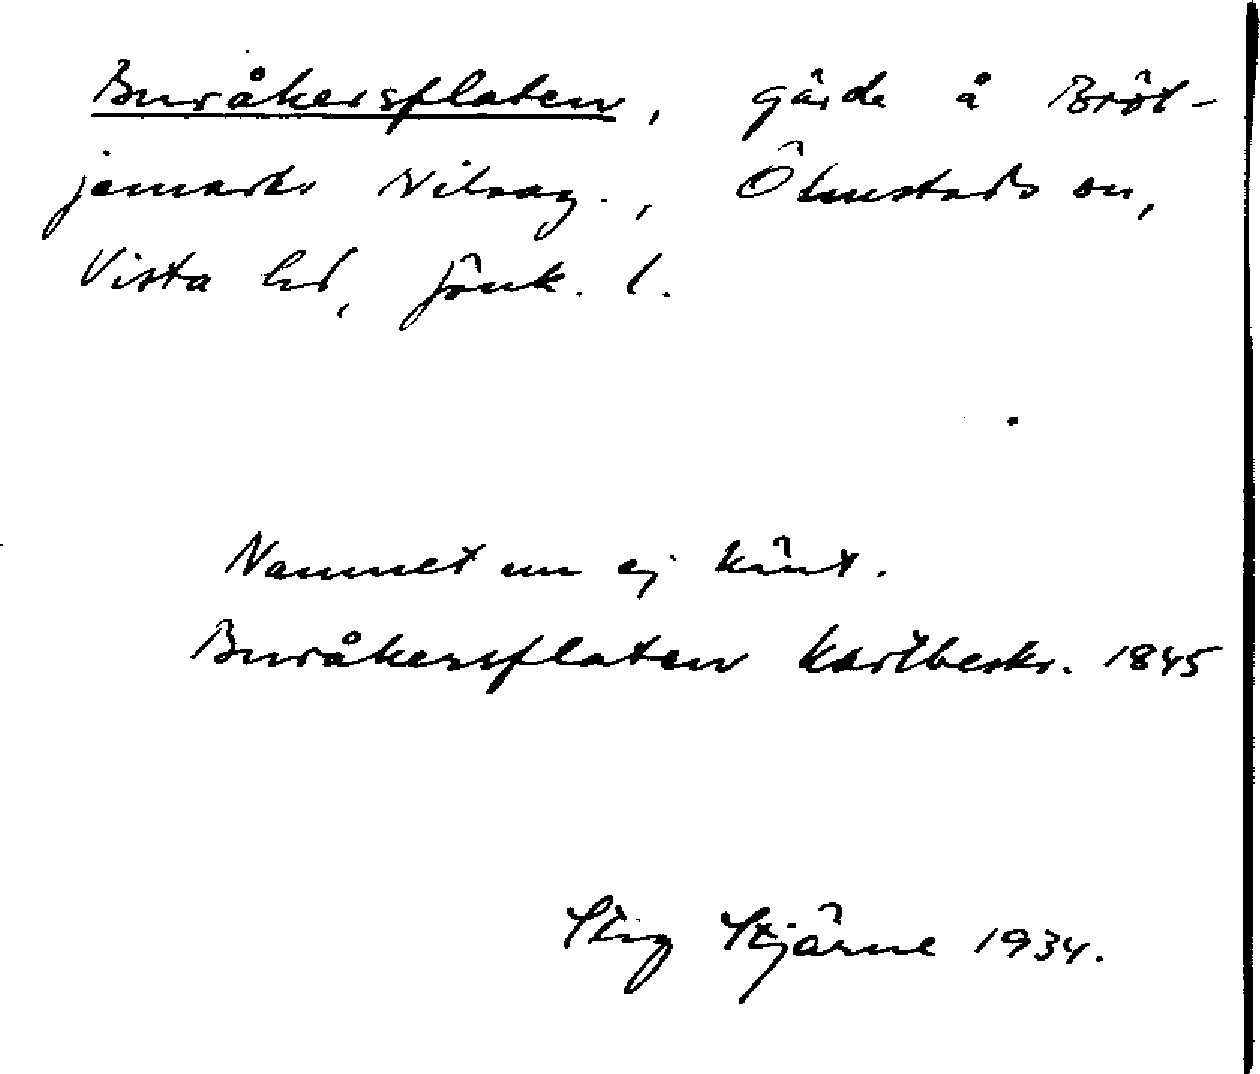 Buråkersflaten, gärde å Bröt-
jemarks Nilsag., Ölmstads sn,
Vista hd, Jönk. l.
Namnet nu ej känt.
Buråkersflaten kartbeskr. 1845
Stig Stjärne 1934.